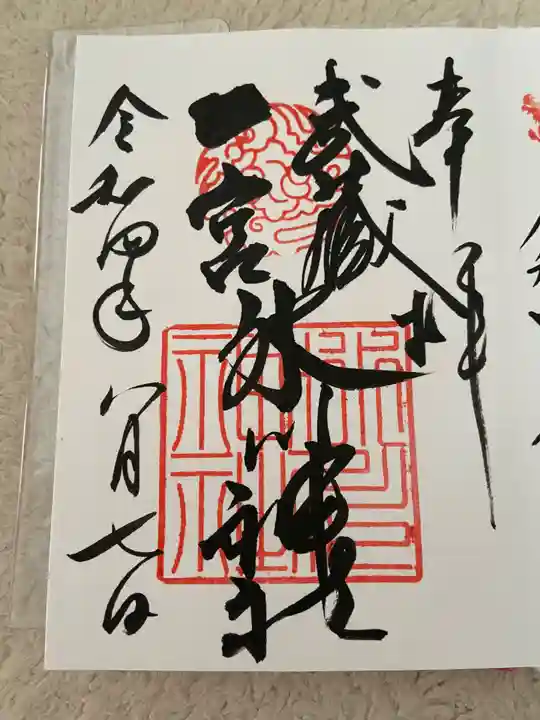 奉拝
武蔵
一宮氷川神社
令和四年八月七日